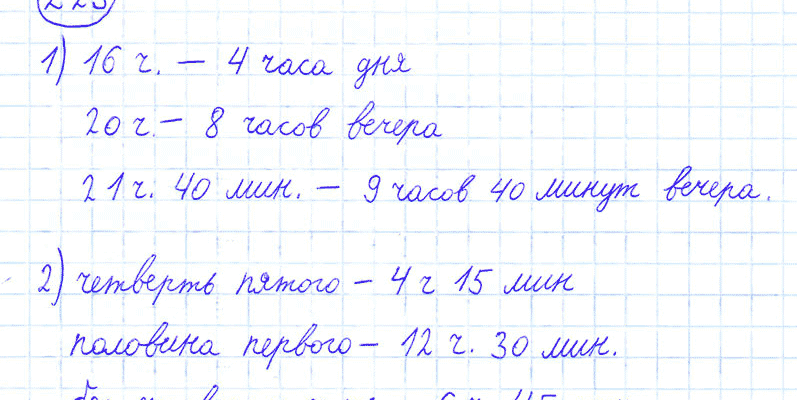 223
1) 16 ч. – 4 часа дня
20 ч. – 8 часов вечера
21 ч. 40 мин. – 9 часов 40 минут вечера.
2) четверть пятого – 4 ч 15 мин
половина первого – 12 ч. 30 мин.